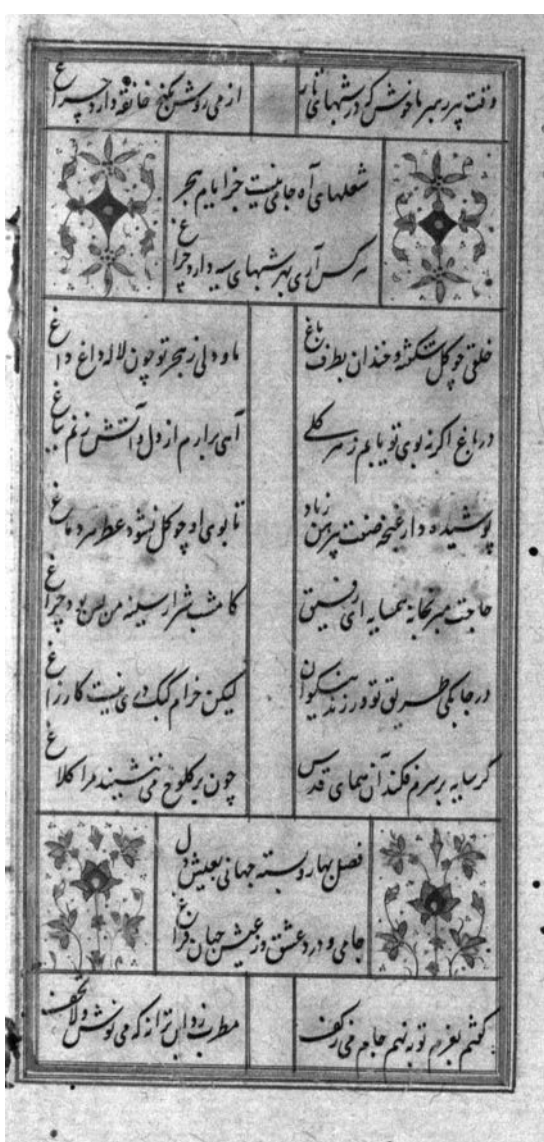 وقت پیر رهبر ما خوش که در شبهای تار از می روشن بکنج خانقه دارد چراغ
شعلهای آه جامی نیست جز ایام هجر
هر کس آری بهر شبهای سیه دارد چراغ
خلقی چو گل شکفته و خندان بطرف باغ ما و دلی ز هجر تو چون لاله داغ داغ
در باغ اگر نه بوی تو یابم ز هر گلی آهی برارم از دل و آتش زنم بباغ
پوشیده دار غنچه صفت پیرهن زیاد تا بوی او چو گل نشود عطر هر دماغ
حاجت مبر بخانه همسایه ای رفیق کامشب شرار سینه من بس بود چراغ
در چابکی طریق تو ورزند نیکوان لیکن خرام کبک دری نیست کار زاغ
گر سایه بر سرم فکند آن همای قدس چون بر کلوخ می ننشیند مرا کلاغ
فصل بهار و بسته جهانی بعیش دل
جامی و درد عشق و ز عیش جهان فراغ
گفتم بعزم توبه نهم جام می ز کف مطرب زد این ترانه که می نوش و لاتخف